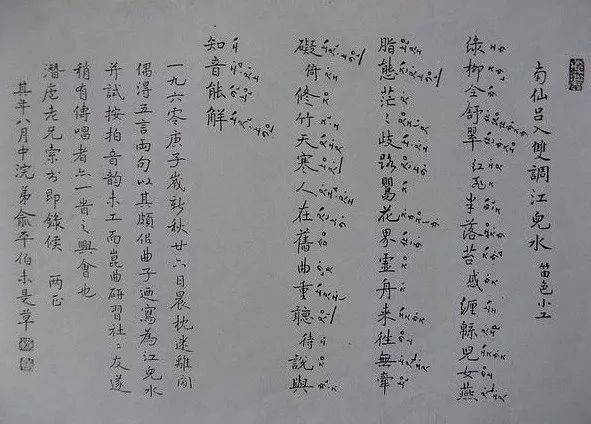 南仙呂入雙調江兒水 笛色小工
綠柳今舒翠紅瓦半落苔感纏緜兒女燕
脂態茫〻歧路鶯花界靈舟来往無牽
礙倚修竹天寒人在舊曲重聽待說與
知音能解
一九六零庚子歲新秋廿六日晨枕迷離間
偶得五言兩句以其頗侶曲子迺寫為江兒水
并試按拍音韵未工而崑曲研習社〻友遂
稍有傳唱者亦一昔之興會也
潛庵老兄索書即錄候 兩正
其年八月中浣弟俞平伯未是草